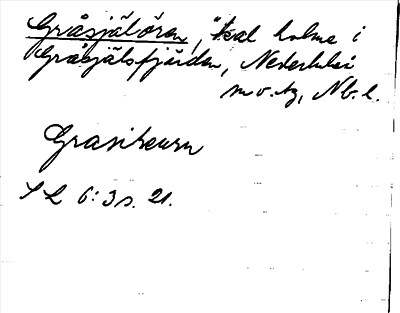 Gråsjälören, "kal holme i
Gråsjälsfjärden, Nederluleå
m.v.tg, Nb.l.
Grasikeurn
SL 6:3 s. 21.